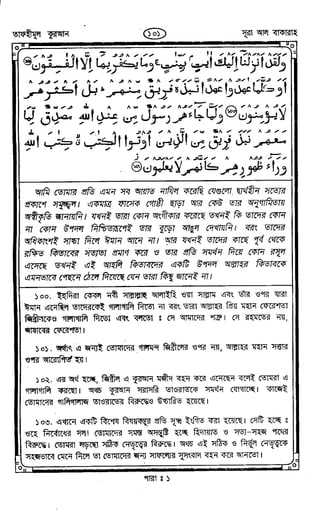 তাফহীমুল কুরআন
১০১
সূরা আল বাকারাহ
وَلَقَدْ اَنْزَلْنَاۤ اِلَيْكَ اٰيٰتٍۭ بَيِّنٰتٍ ۚ وَمَا يَكْفُرُ بِهَاۤ اِلَّا الْفٰسِقُوْنَ
اَوَكُلَّمَا عٰهَدُوْا عَهْدًا نَّبَذَهٗ فَرِيْقٌ مِّنْهُمْ ؕ بَلْ اَكْثَرُهُمْ
لَا يُؤْمِنُوْنَ وَلَمَّا جَآءَهُمْ رَسُوْلٌ مِّنْ عِنْدِ اللّٰهِ مُصَدِّقٌ لِّمَا
مَعَهُمْ نَبَذَ فَرِيْقٌ مِّنَ الَّذِيْنَ اُوْتُوا الْكِتٰبَ ۙ كِتٰبَ اللّٰهِ
وَرَآءَ ظُهُوْرِهِمْ كَاَنَّهُمْ لَا يَعْلَمُوْنَ
আমি তোমার প্রতি এমন সব আয়াত নাযিল করেছি যেগুলো দ্ব্যর্থহীন সত্যের
প্রকাশে সমুজ্জ্বল। একমাত্র ফাসেক গোষ্ঠী ছাড়া আর কেউ তার অনুগামিতায়
অস্বীকৃতি জানায়নি। যখনই তারা কোন অংগীকার করেছে তখনই কি তাদের কোন
না কোন উপদল নিশ্চিতরূপেই তার বুড়ো আঙুল দেখায়নি। বরং তাদের
অধিকাংশই সাচ্চা দিলে ঈমান আনে না। আর যখনই তাদের কাছে পূর্ব থেকে
রক্ষিত কিতাবের সত্যতা প্রমাণ করে ও তার প্রতি সমর্থন দিয়ে কোন রসূল
এসেছে তখনই এই আহলি কিতাবদের একটি উপদল আল্লাহর কিতাবকে
এমনভাবে পেছনে ঠেলে দিয়েছে যেন তারা কিছু জানেই না।
১০০. ইহুদিরা কেবল নবী সাল্লাল্লাহু আলাইহি ওয়া সাল্লাম এবং তাঁর ওপর যারা
ঈমান এনেছিল তাদেরকেই গালাগালি দিতো না বরং তারা আল্লাহর প্রিয় মহান ফেরেশতা
জিব্রীলকেও গালাগালি দিতো এবং বলতোঃ সে আমাদের শত্রু। সে রহমতের নয়,
আযাবের ফেরেশতা।
১০১. অর্থাৎ এ জন্যই তোমাদের গালমন্দ জিব্রীলের ওপর নয়, আল্লাহর মহান সত্তার
ওপর আরোপিত হয়।
১০২. এর অর্থ হচ্ছে, জিব্রীল এ কুরআন মজীদ বহন করে এনেছেন বলেই তোমরা এ
গালাগালি করছো। অথচ কুরআন সরাসরি তাওরাতকে সমর্থন যোগাচ্ছে। কাজেই
তোমাদের গালিগালাজ তাওরাতের বিরুদ্ধেও উচ্চারিত হয়েছে।
১০৩. এখানে একটি বিশেষ বিষয়বস্তুর প্রতি সূক্ষ্ম ইংগিত করা হয়েছে। সেটি হচ্ছেঃ
ওহে নির্বোধের দল। তোমাদের সমস্ত অসন্তুষ্টি হচ্ছে হিদায়াত ও সত্য-সহজ পথের
বিরুদ্ধে। তোমরা লড়ছো সঠিক নেতৃত্বের বিরুদ্ধে। অথচ এই সঠিক ও নির্ভুল নেতৃত্বকে
সহজভাবে মেনে নিলে তা তোমাদের জন্য সাফল্যের সুসংবাদ বহন করে আনতো।
পারাঃ ১